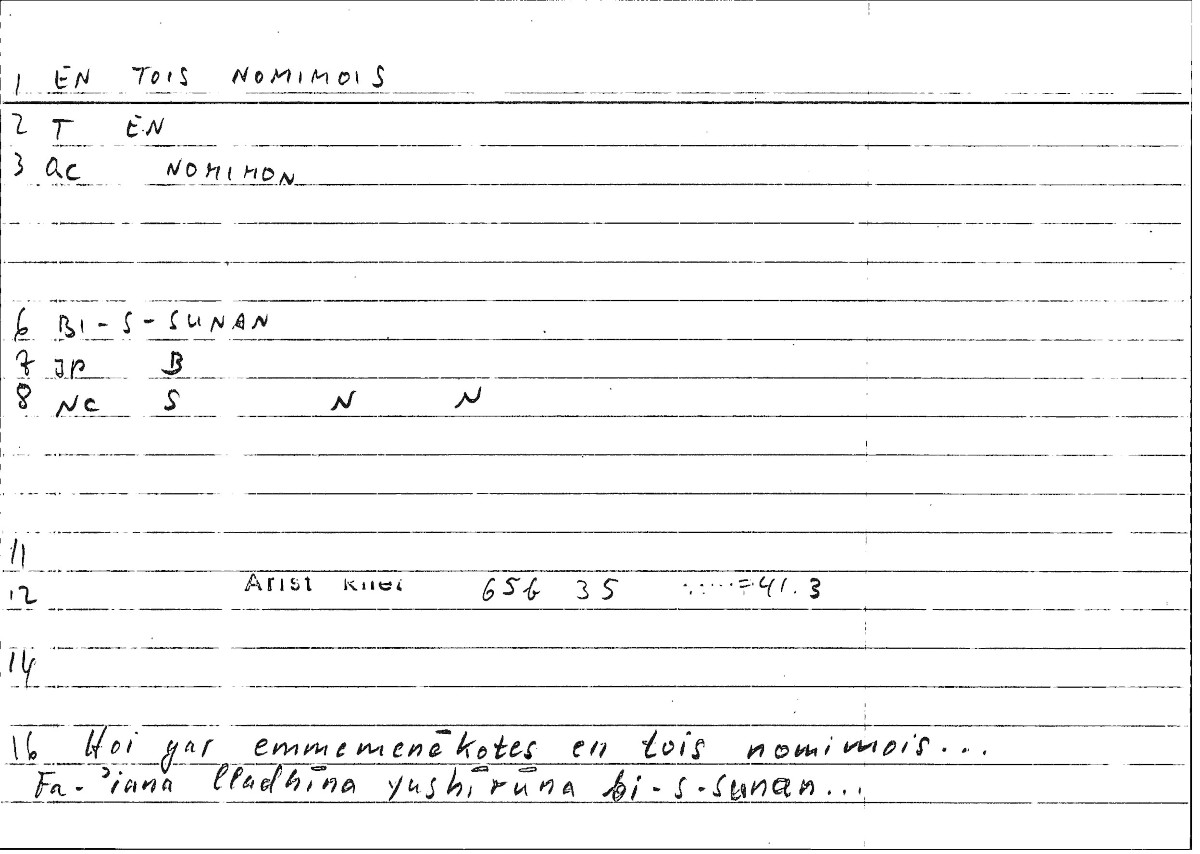 1 EN TOIS NOMIMOIS
2 T EN
3 QC NOMIMON
6 BI-S-SUNAN
7 JP B
8 NC S N N
11
12 Arist Rhet 656 35 =41.3
14
16 Hoi gar emmemenēkotes en tois nomimois...
Fa-'inna lladhīna yushīrūna bi-s-sunan...